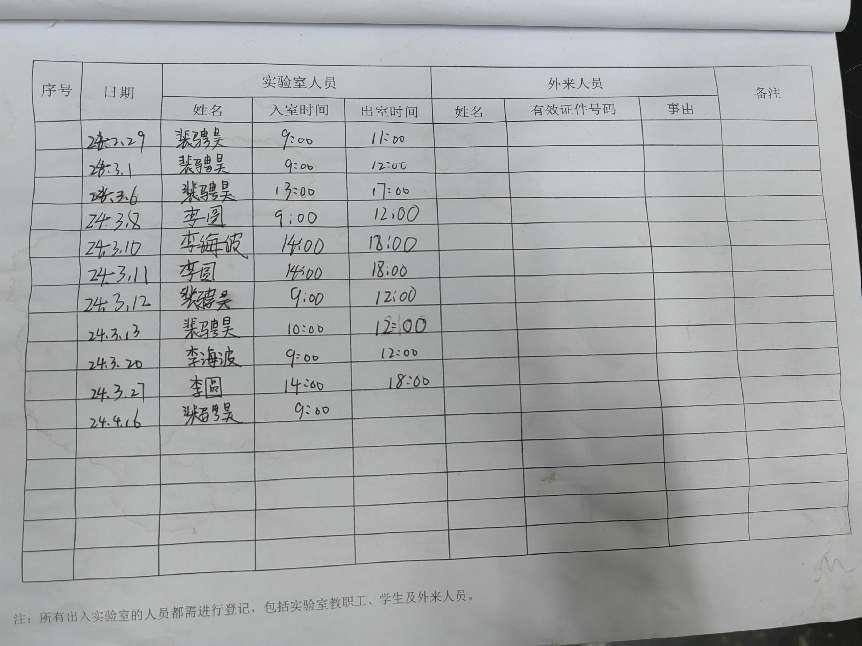 序号 日期 实验室人员 外来人员 备注
姓名 入室时间 出室时间 姓名 有效证件号码 事由
24.2.29 裴骋昊 9:00 11:00
24.3.1 裴骋昊 9:00 12:00
24.3.6 裴骋昊 13:00 17:00
24.3.8 李圆 9:00 12:00
24.3.10 李海波 14:00 18:00
24.3.11 李圆 14:00 18:00
24.3.12 裴骋昊 9:00 12:00
24.3.13 裴骋昊 10:00 12:00
24.3.20 李海波 9:00 12:00
24.3.27 李圆 14:00 18:00
24.4.16 裴骋昊 9:00
注：所有出入实验室的人员都需进行登记，包括实验室教职工、学生及外来人员。